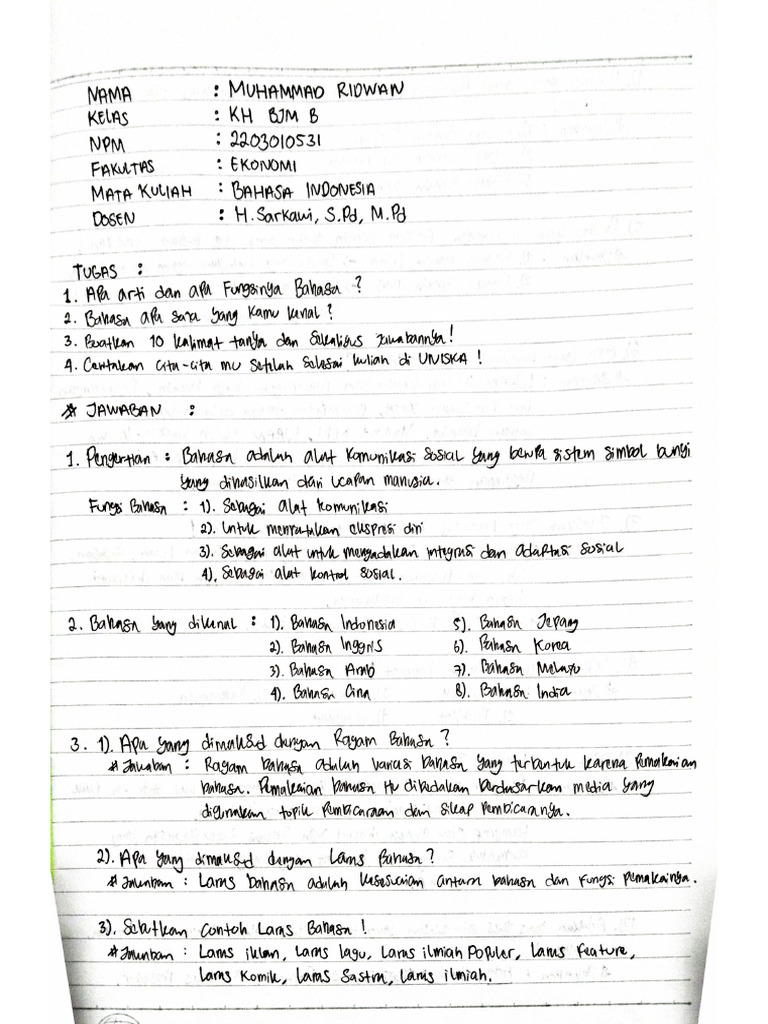 NAMA : MUHAMMAD RIDWAN
KELAS : KH BJM B
NPM : 2203010531
FAKULTAS : EKONOMI
MATA KULIAH : BAHASA INDONESIA
DOSEN : H. Sarkawi, S.Pd, M.Pd
TUGAS :
1. Apa arti dan apa Fungsinya Bahasa ?
2. Bahasa apa saja yang kamu kenal ?
3. Buatkan 10 kalimat tanya dan sekaligus jawabannya !
4. Ceritakan cita-cita mu setelah selesai kuliah di UNISKA !
* JAWABAN :
1. Pengertian : Bahasa adalah alat komunikasi sosial yang berupa sistem simbol bunyi
yang dihasilkan dari ucapan manusia.
Fungsi Bahasa : 1). Sebagai alat komunikasi
2). Untuk menyatakan ekspresi diri
3). Sebagai alat untuk mengadakan integrasi dan adaptasi sosial
4). Sebagai alat kontrol sosial.
2. Bahasa yang dikenal : 1). Bahasa Indonesia 5). Bahasa Jepang
2). Bahasa Inggris 6). Bahasa Korea
3). Bahasa Arab 7). Bahasa Melayu
4). Bahasa Cina 8). Bahasa India
3. 1). Apa yang dimaksd dengan Ragam Bahasa ?
* Jawaban : Ragam bahasa adalah variasi bahasa yang terbentuk karena pemakaian
bahasa. Pemakaian bahasa itu dibedakan berdasarkan media yang
digunakan topik pembicaraan dan sikap pembicaranya.
2). Apa yang dimaksd dengan Laras Bahasa ?
* Jawaban : Laras bahasa adalah kesesuaian antara bahasa dan fungsi pemakainya.
3). Sebutkan contoh Laras Bahasa !
* Jawaban : Laras iklan, Laras lagu, Laras ilmiah Populer, Laras feature,
Laras Komik, Laras Sastra, Laras ilmiah.